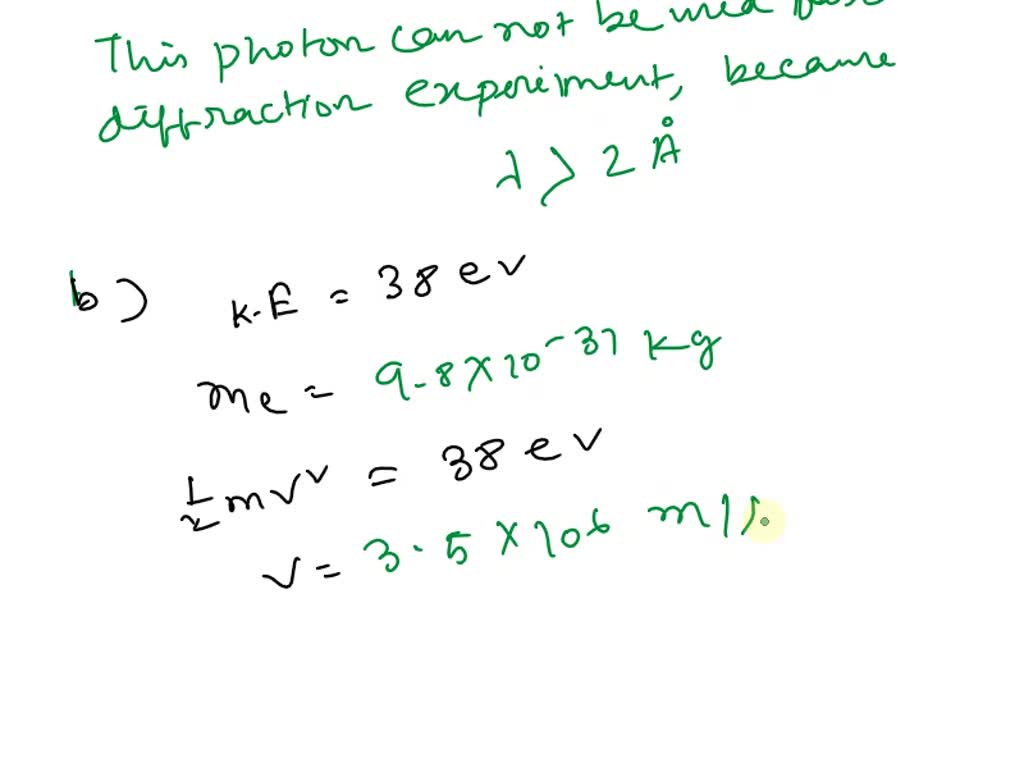 This photon can not be used
diffraction experiment, because
λ > 2 Å
b) K.E = 38 ev
me = 9.8 × 10⁻³¹ kg
½ mv² = 38 ev
v = 3.5 × 10⁶ m/s